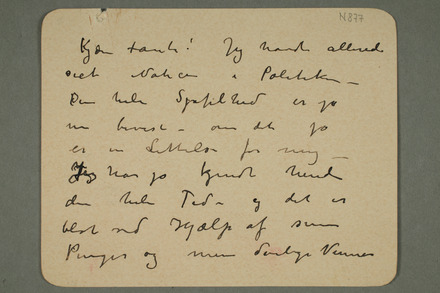 N877
Kjære tante! Jeg havde allerede
seet Notisen i Politiken –
Den hele er jo
nu bevist – om det jo
er en Lettelse for mig –
Jeg har jo kjendt hende
den hele Tid – og det er
blot ved Hjælp af sine
Penge og mine Venner